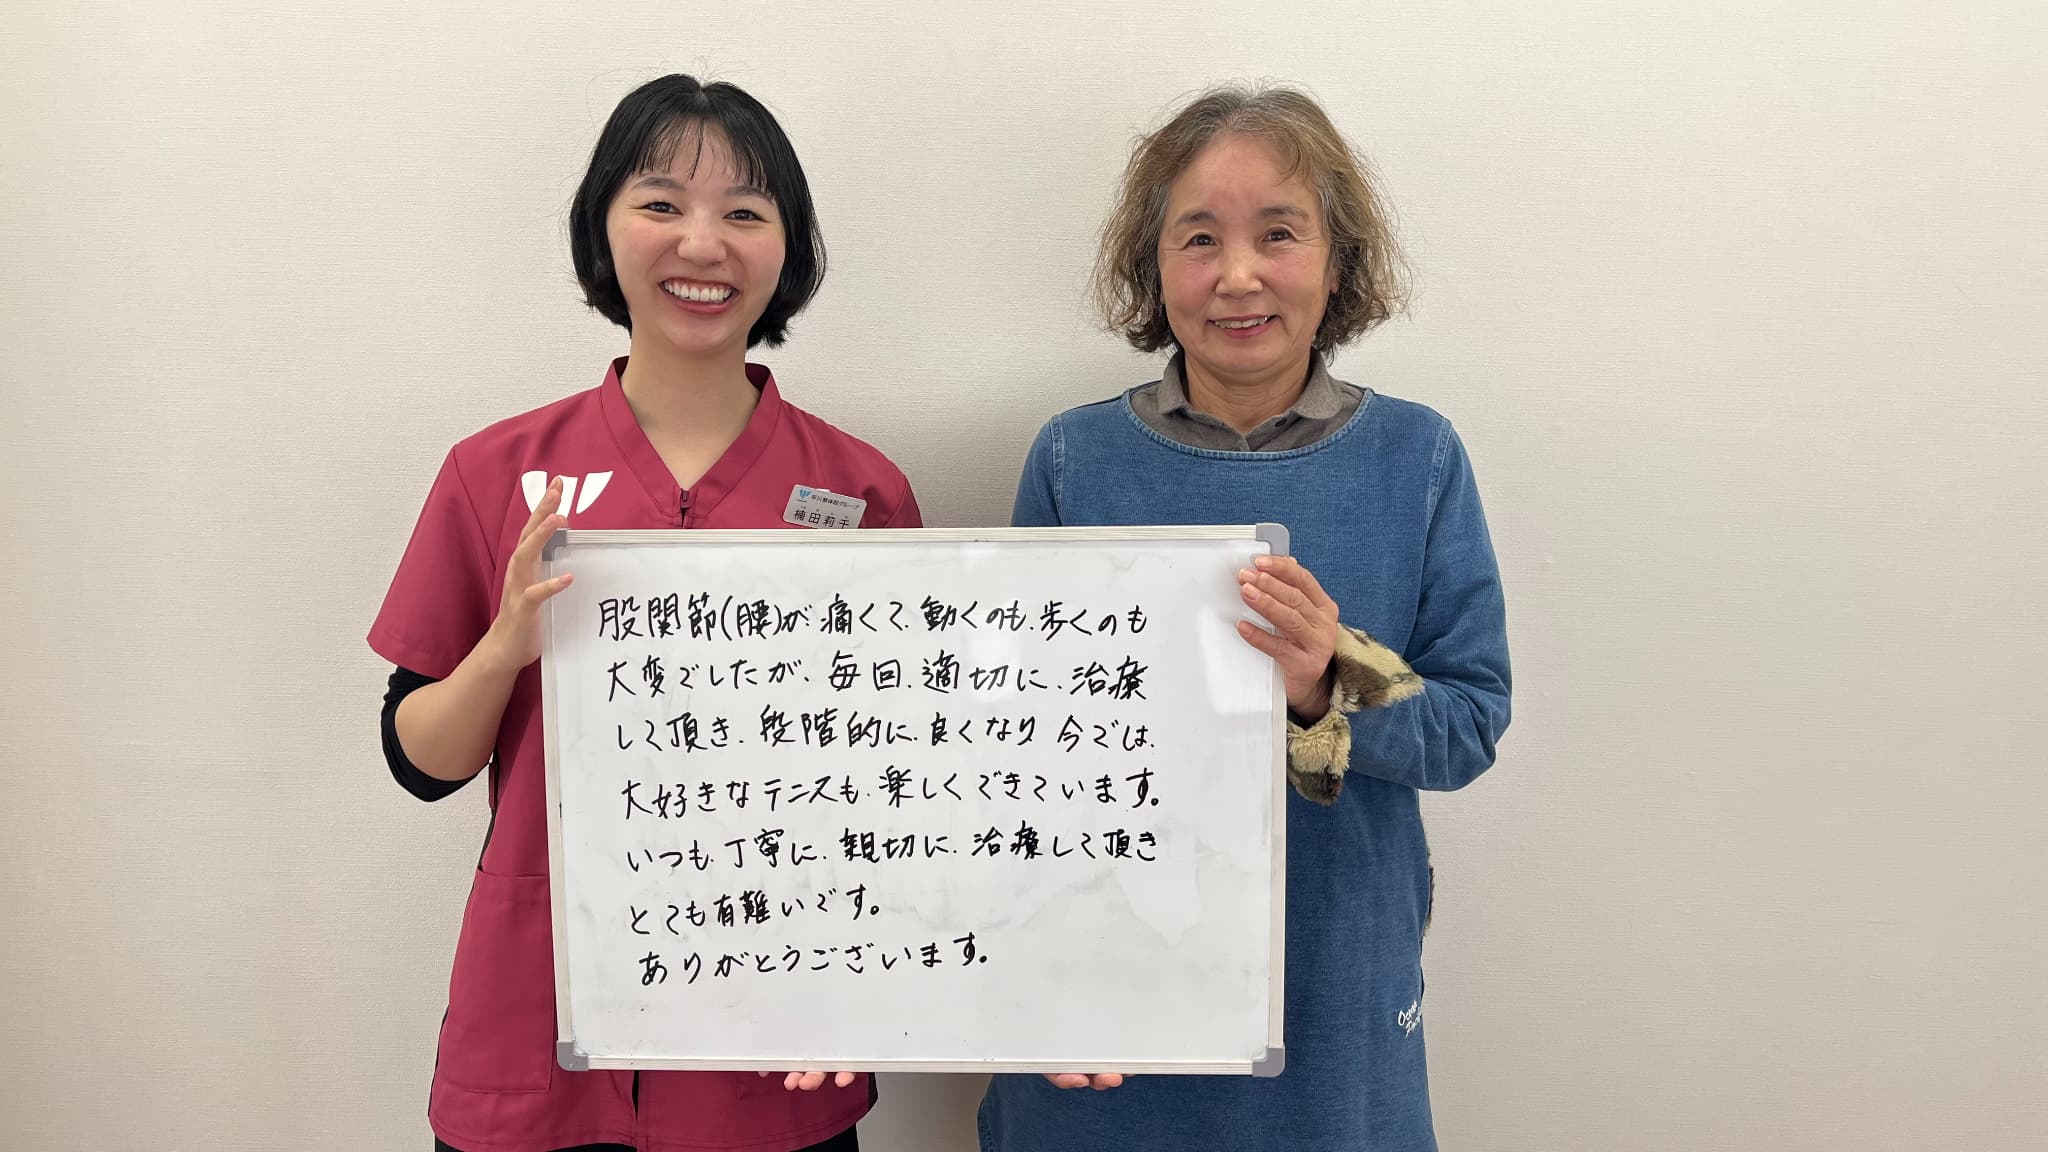 平川整体院グループ
楠田莉千
股関節(腰)が痛くて、動くのも、歩くのも
大変でしたが、毎回、適切に、治療
して頂き、段階的に、良くなり 今では、
大好きなテニスも、楽しくできています。
いつも、丁寧に、親切に、治療して頂き
とても有難いです。
ありがとうございます。
Ocean